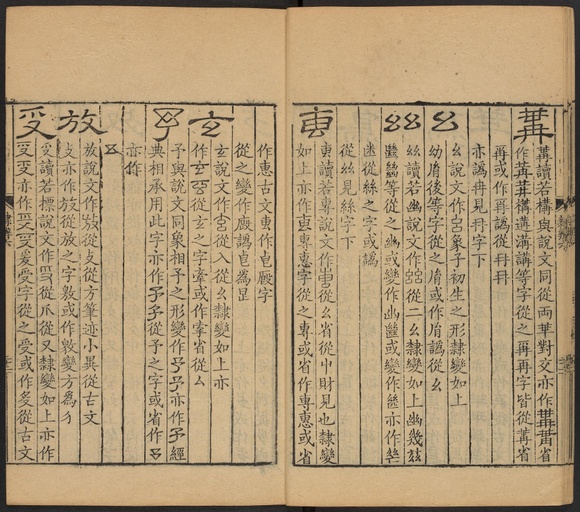 冓 冓讀若構與說文同從兩𠦒對交亦作省
作冓冓構遘溝講等字從之爯再字皆從冓省
再或作再譌從冄冄
亦譌冉見冄字下
幺 幺說文作象子初生之形隸變如上
幼後等字從之或作譌從幺
𢆶 𢆶讀若幽說文作從二幺隸變如上幽幾茲
等從之幽或變作幽或變作亦作
從絲之字或譌
從𢆶見絲字下
叀 叀讀若專說文作從幺省從屮財見也隸變
如上亦作專惠字從之專或省作専惠或省
作恵古文叀作皀字
從之變作廄譌皀為
玄 玄說文作從入從幺隸變如上亦
作從玄之字牽或作省從厶
予 予與說文同象相予之形變作予亦作予經
典相承用此字亦作從予之字或省作
亦作
放 放說文作從攴從方筆迹小異從古文
攴亦作從放之字敖或作敖變方為
𠬪 𠬪讀若標說文作從爪從又隸變如上亦作
亦作爰受字從之受或作從古文